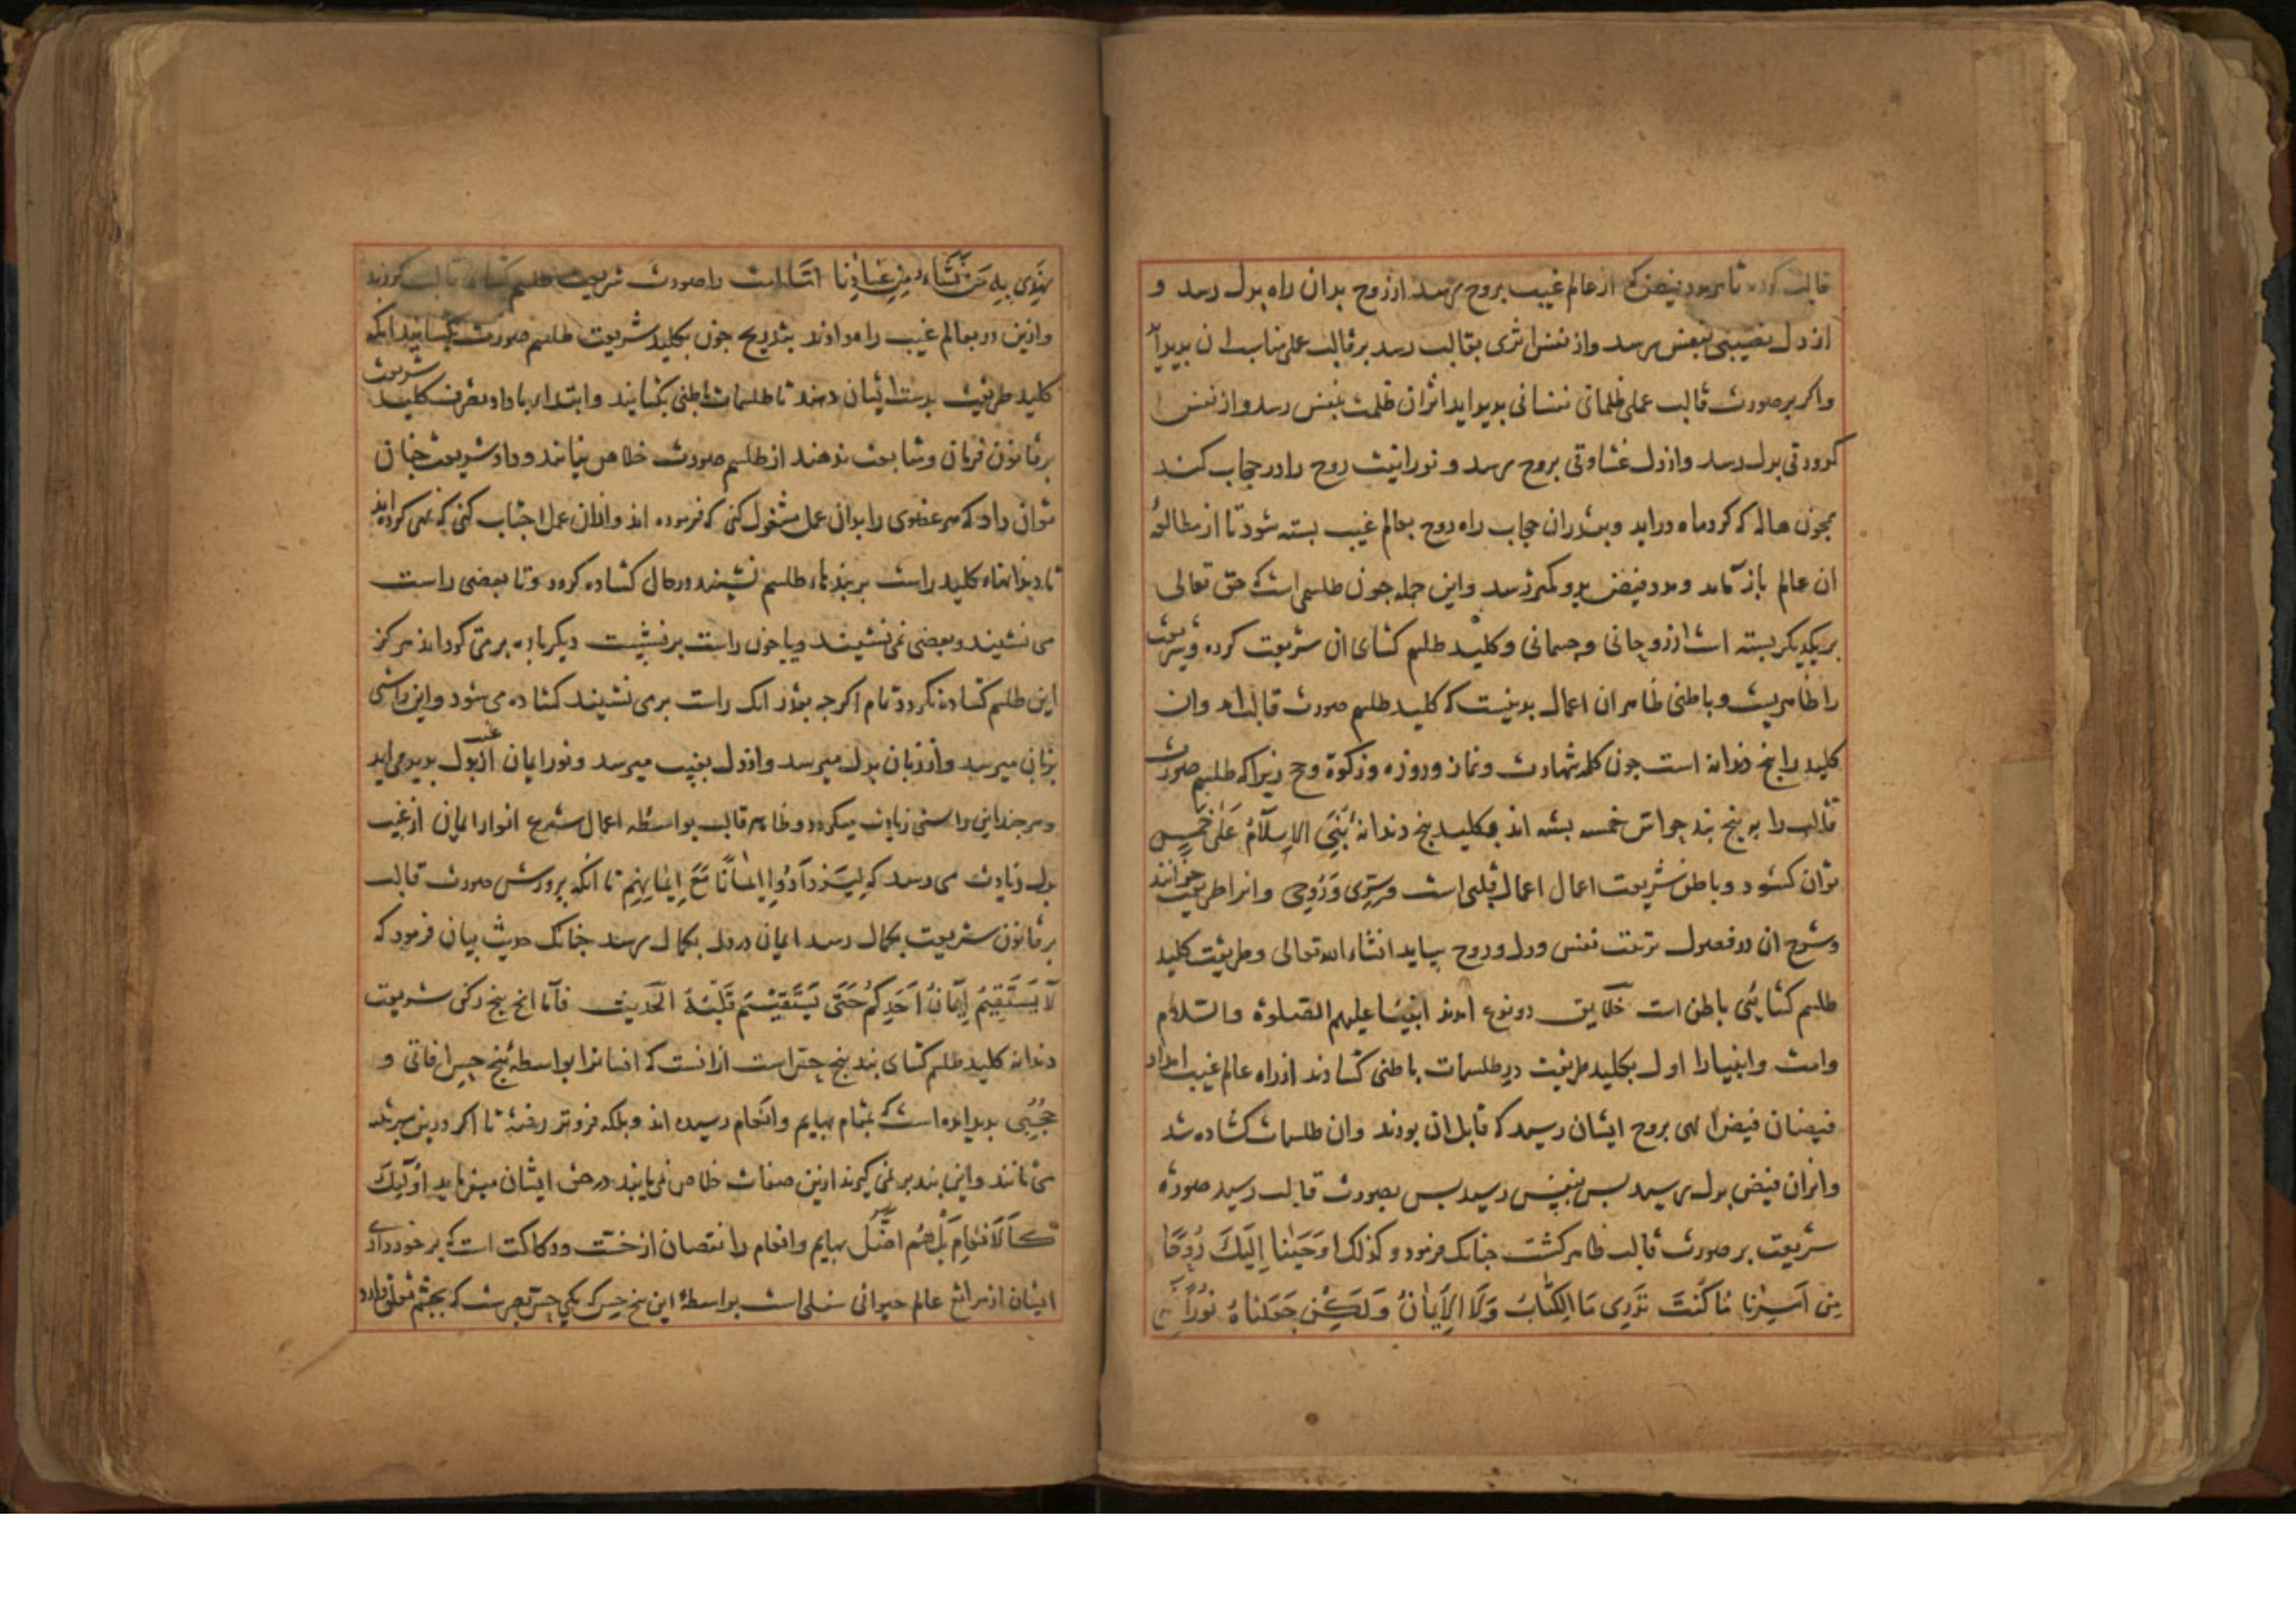 قالب کرده تا مدد فیض که از عالم غیب بروح میرسد از روح بدان راه بدل رسد و
از دل نصیبی بنفس رسد واز نفس اثری بقالب رسد بر قالب عملی مناسب ان بدید اید
واکر بر صورت قالب عملی ظلمانی نفسانی بدید اید اثر ان ظلمت بنفس رسد واز نفس
کدورتی بدل رسد واز دل غشاوتی بروح رسد و نورانیت روح را در حجاب کند
همجون هاله که کرد ماه دراید وبقدر ان حجاب راه روح بعالم غیب بسته شود تا از مطالعهٔ
ان عالم باز ماند ومدد فیض بدو کمتر رسد واین جمله جون طلسمی است که حق تعالی
بر یکدیکر بسته است از روحانی و جسمانی وکلید طلسم کشای ان شریعت کرده وشریعت
را ظاهریست و باطنی ظاهر ان اعمال بدنیست که کلید طلسم صورت قالب امد وان
کلید را بنج دندانه است جون کلمه شهادت ونماز وروزه وزکوة وحج زیرا که طلسم صورت
قالب را به بنج بند حواس خمسه بسته اند وبکلید بنج دندانهٔ بُنِیَ الاِسلَامُ عَلَی خَمسٍ
توان کشود وباطن شریعت اعمال قلبی است وسِرّی ورُوحی وانرا طریقت خوانند
وشرح ان در فصول تربیت نفس ودل وروح بیاید انشاء الله تعالی وطریقت کلید
طلسم کشائی باطن است خلایق دو نوع امدند انبیا علیهم الصلوة والسلام
وامت وانبیا را اول بکلید طریقت در طلسمات باطنی کشادند از راه عالم غیب امداد
فیضان فیض الهی بروح ایشان رسید که قابل ان بودند وان طلسمات کشاده شد
واثر ان فیض بدل رسید بس بنفس رسید بس بصورت قالب رسید صورة
شریعت بر صورت قالب ظاهر کشت جنانک فرمود وکذلک اوحَینا اِلَیکَ رُوحًا
مِن اَمرِنَا مَا کُنتَ تَدرِی مَا الکِتابُ وَلَا الاِیمانُ وَلَکِن جَعَلناهُ نُورًا
نَهدِی بِهِ مَن نَشَاءُ مِن عِبَادِنا امّا امت را صورت شریعت طلسم کشای قالب کردند
وازین در بعالم غیب راه دادند بتدریج جون بکلید شریعت طلسم صورت بکشایند انکه
کلید طریقت بدست ایشان دهند تا طلسمات باطنی بکشایند وابتدا تا داد تصرف کلید شریعت
بر قانون فرمان ومتابعت ندهند از طلسم صورت خلاص نیابند وداد شریعت جنان
توان داد که هر عضوی را بدان عمل مشغول کنی که فرموده اند واز ان عمل اجتناب کنی که نهی کرده اند
تا دندانهاء کلید راست بر بندهاء طلسم نشیند در حال کشاده کردد وتا بعضی راست
می نشیند وبعضی نمی نشیند ویا جون راست بر نشیت دیکر باره بر می کرداند هرکز
این طلسم کشاده نکردد تمام اکرجه بقدر انک راست برمی نشیند کشاده می شود واین راستی
بزبان میرسد واز زبان بدل میرسد واز دل بغیب میرسد ونور ایمان از غیب بدل بدید می اید
وهر جند این راستی زیادت میکردد وظاهر قالب بواسطه اعمال شرع انوار ایمان از غیب
بدل زیادت می رسد که لِیَزدَادُوا اِیمانًا مَعَ اِیمانِهِم تا انکه برورش صورت قالب
بر قانون شریعت بکمال رسد ایمان در دل بکمال رسد جنانک حدیث بیان فرمود که
لَا یَستَقِیمُ اِیمَانُ اَحَدِکُم حَتَّی یَستَقِیمَ قَلبُهُ الحَدیث فاما انج بنج رکن شریعت
دندانه کلید طلسم کشای بند بنج حس است از انست که انسان را بواسطهٔ بنج حس افاتی و
حُجُبی بدید امده است که بمقام بهایم وانعام رسیده اند وبلکه فروتر رفته تا اکر درین مرتبه
می مانند واین بند بر نمی کیرند ازین صفات خلاص نمی یابند در حق ایشان میفرماید اُولَئِکَ
کَالاَنعَامِ بَل هُم اَضَلُّ بهایم وانعام را نقصان از خست ورکاکت است که برخورداری
ایشان از مراتع عالم حیوانی سفلی است بواسطهٔ این بنج حس که یکی حس بصر است که بجشم تعلق دارد